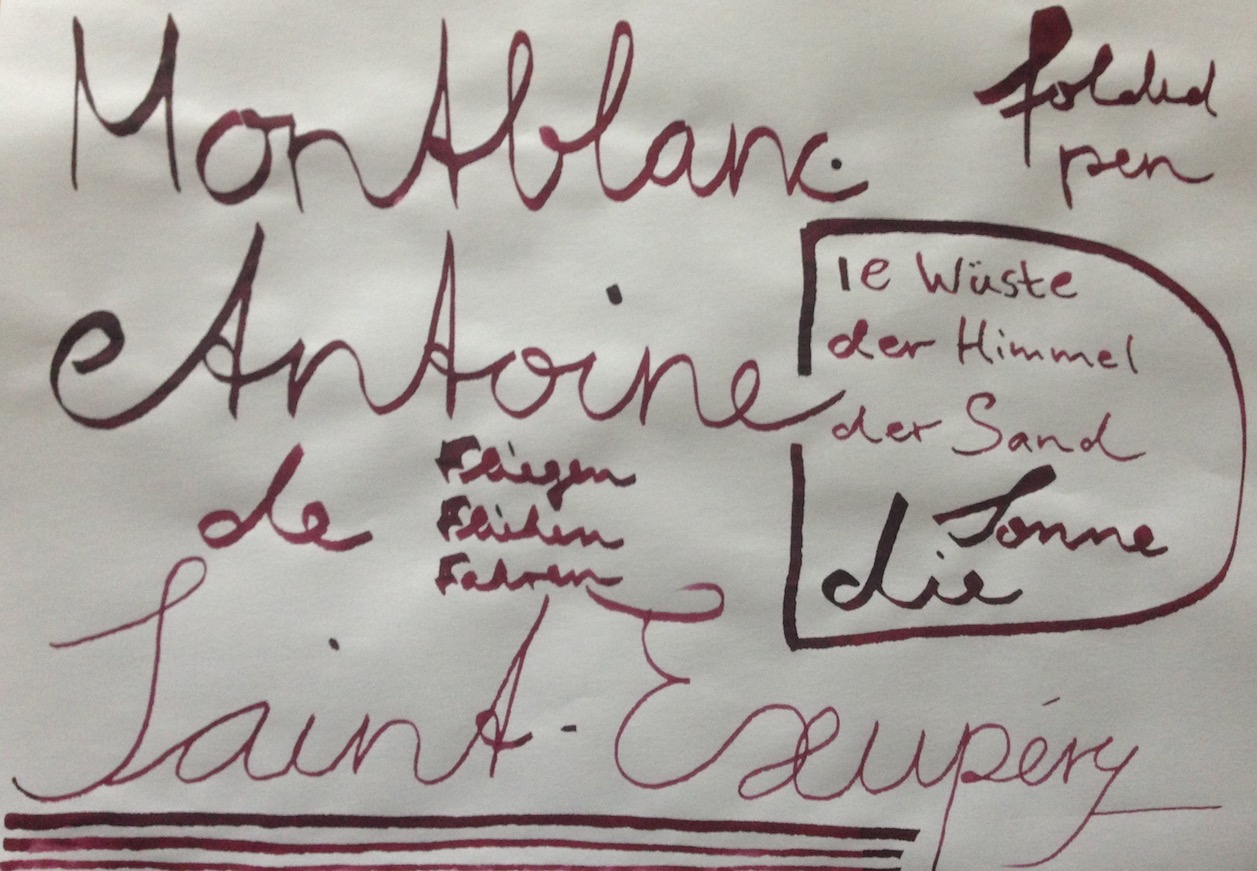 Montblanc
folded
pen
Antoine
Die Wüste
der Himmel
der Sand
die Sonne
de
Fliegen
Fliehen
Fahren
Saint-Exupéry